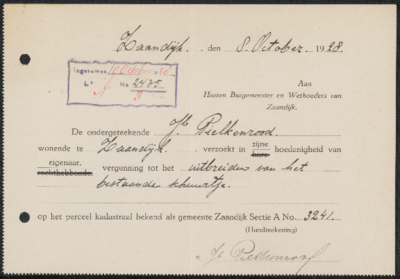 Zaandijk, den 8 October 1928.
Ingekomen 10 October 28
Lª A No 2485
Aan
Heeren Burgemeester en Wethouders van
Zaandijk.
De ondergeteekende Jb Pielkenrood
wonende te Zaandijk. verzoekt in zijne hare hoedenigheid van
eigenaar. rechthebbende. vergunning tot het uitbreiden van het
bestaande schuurtje.
op het perceel kadastraal bekend als gemeente Zaandijk Sectie A No. 3241.
(Handteekening)
Jb Pielkenrood